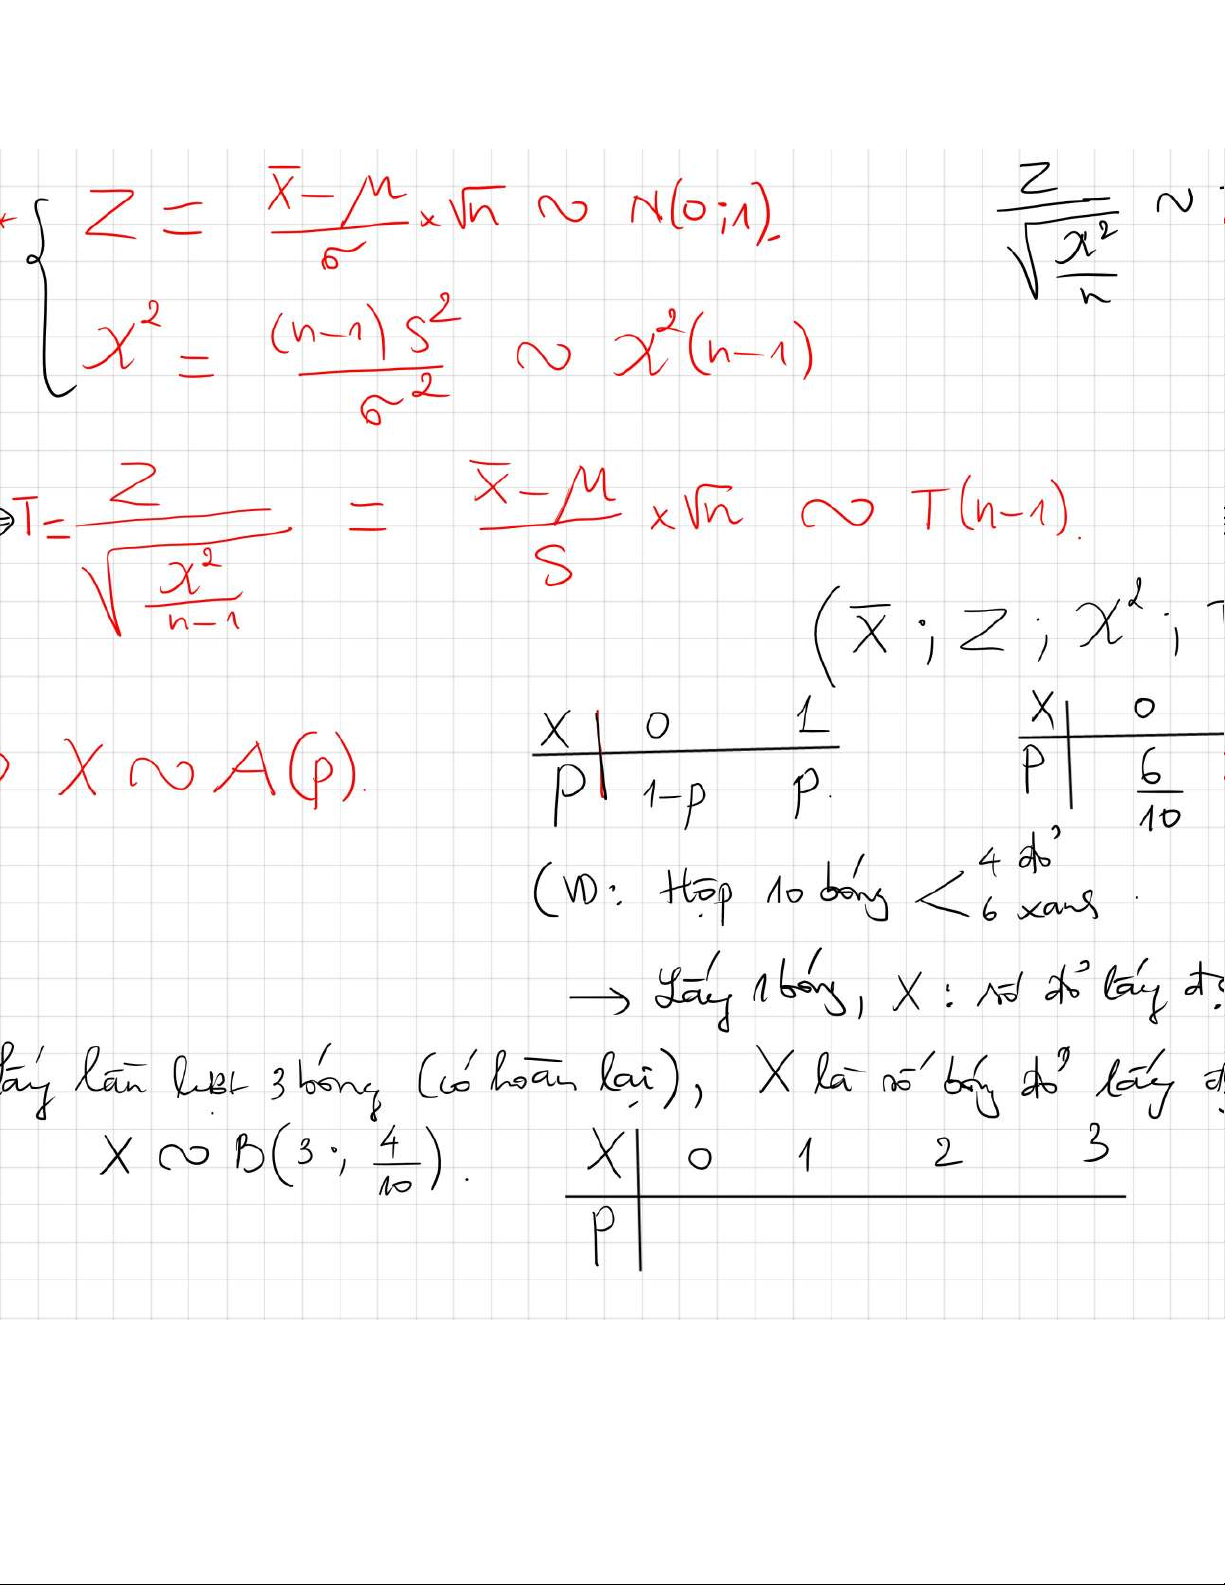 Z = (X̄ − μ)/σ × √n ∼ N(0;1).
Z/√(χ²/n) ∼
χ² = (n−1)S²/σ² ∼ χ²(n−1)
⇒ T = Z/√(χ²/(n−1)) = (X̄ − μ)/S × √n ∼ T(n−1).
(X̄ ; Z ; χ² ;
X ∼ A(p).
X | 0 1
P | 1−p p.
X | 0
P | 6/10
(VD: Hộp 10 bóng < 4 đỏ
6 xanh
→ Lấy 1 bóng, X : số đỏ lấy
lần lượt 3 bóng (có hoàn lại), X là số bóng đỏ lấy
X ∼ B(3; 4/10).
X | 0 1 2 3
P |